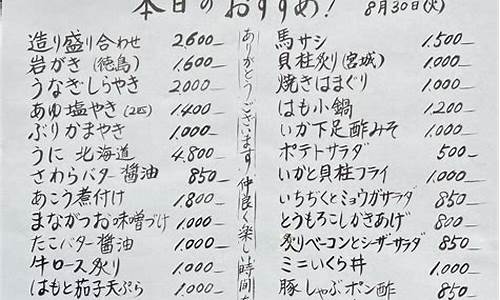 本日のおすすめ! 8月30日(火)
造り盛り合わせ 2,600-
岩がき(徳島) 1,600-
うなぎしらやき 2,000-
あゆ塩やき(2匹) 1,400-
ぶりかまやき 1,000-
うに 北海道 4,800-
さわらバター醤油 850-
あこう煮付け 1,800-
まながつお味噌づけ 1,000-
たこバター醤油 1,000-
牛ロース炙り 1,000-
はもと茄子天ぷら 1,000-
ありがとうございます 仲良く楽しい時間を
馬サシ 1,500-
貝柱炙り(宮城) 1,000-
焼きはまぐり 1,000-
はも小鍋 1,200-
いか下足酢みそ 1,000-
ポテトサラダ 500-
いかと貝柱フライ 1,000-
いちぢくとミョウガサラダ 850-
とうもろこしかきあげ 800-
炙りベーコンとシーザーサラダ 850-
ミニいくら丼 1,000-
豚しゃぶポン酢 850-